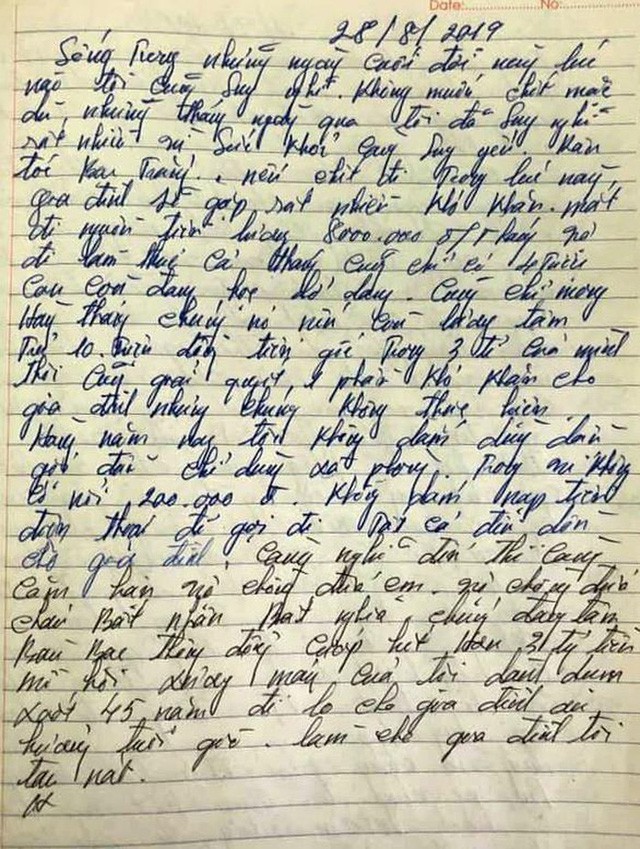 Date: No:
28/8/2019
Sống Trong những ngày cuối đời này lúc
nào tôi cũng suy nghĩ. Không muốn chết mặc
dù, những tháng ngày qua tôi đã suy nghĩ
rất nhiều vì sức khoẻ suy yếu.
tôi nếu chết đi Trong lúc này,
gia đình sẽ gặp rất nhiều khó khăn. mất
đi nguồn tiền lương 8000.000 đ/Tháng vợ
đi làm thuê cả tháng cũng chỉ có 4 triệu
con còn đang học dở dang. Cũng chỉ mong
Hàng tháng chúng nó nên lương tâm
Trả 10. Triệu đồng tiền gốc Trong 3 tỉ của mình
thôi cũng giải quyết, 1 phần khó khăn cho
gia đình nhưng chúng không thực hiện.
Hàng năm nay tôi không dám dùng dầu
gội đầu chỉ dùng xà phòng. Trong ví không
có nổi 200.000 đ. Không dám nạp tiền
điện thoại để gọi đi Tất cả để dồn
cho gia đình, Càng nghĩ đến thì Càng
căm hận vợ chồng đứa em. vợ chồng đứa
cháu Bất nhân Bất nghĩa, chúng đang tâm
cướp hết Hơn 3 tỷ tiền
mồ hôi xương máu của tôi dành dụm
suốt 45 năm để lo cho gia đình
hưởng tuổi già. làm cho gia đình tôi
tan nát.